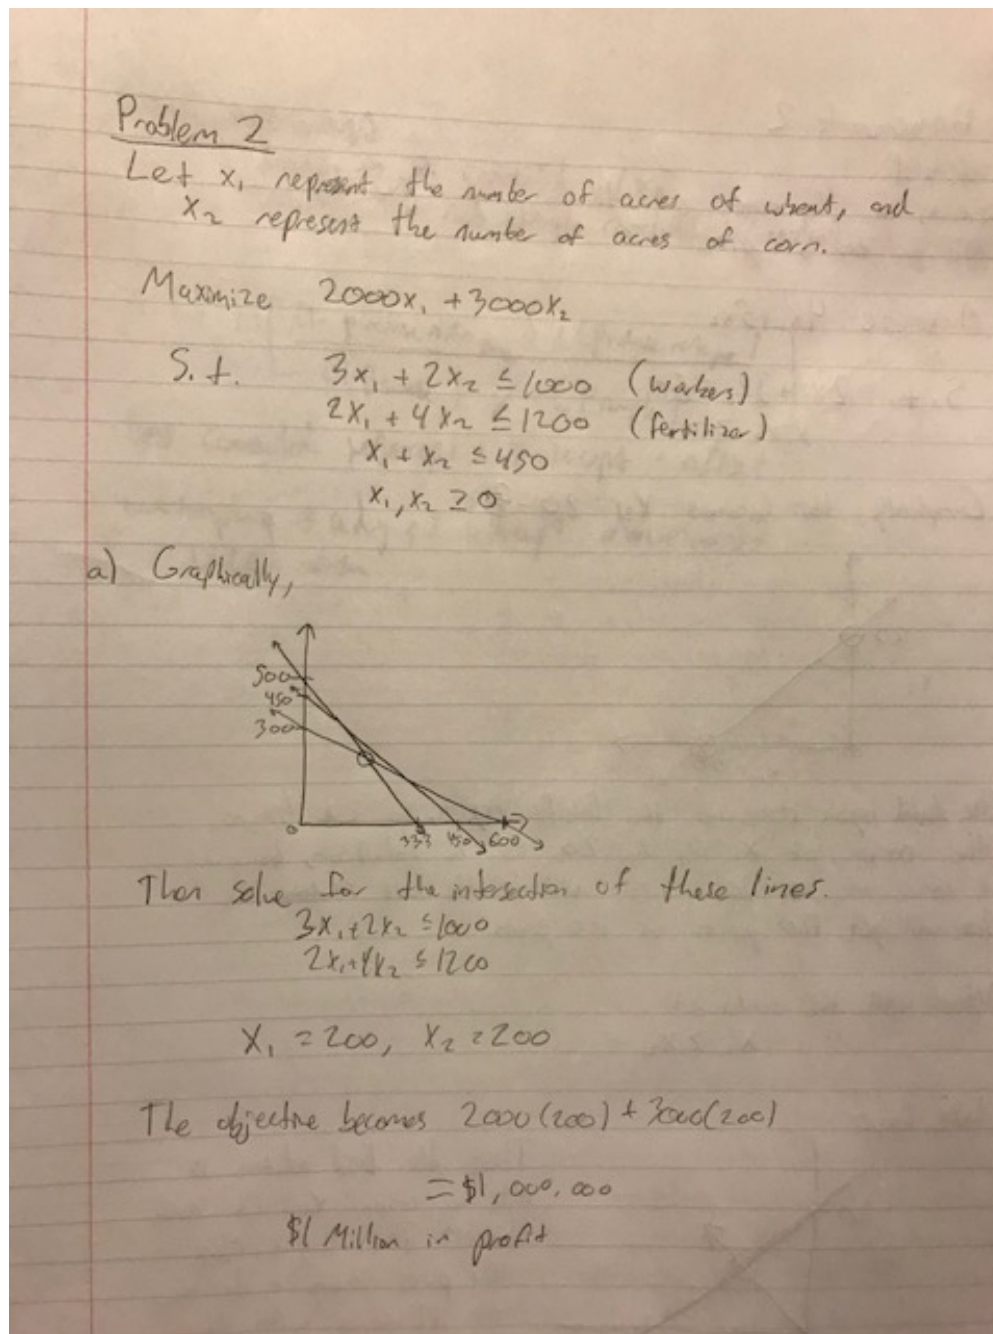 Problem 2
Let x₁ represent the number of acres of wheat, and
x₂ represent the number of acres of corn.
Maximize 2000x₁ + 3000x₂
S.t. 3x₁ + 2x₂ ≤ 1000 (workers)
2x₁ + 4x₂ ≤ 1200 (fertilizer)
x₁ + x₂ ≤ 450
x₁, x₂ ≥ 0
a) Graphically,
500
450
300
0 333 450 600
Then solve for the intersection of these lines.
3x₁+2x₂ ≤ 1000
2x₁+4x₂ ≤ 1200
x₁ = 200, x₂ = 200
The objective becomes 2000(200) + 3000(200)
= $1,000,000
$1 Million in profit